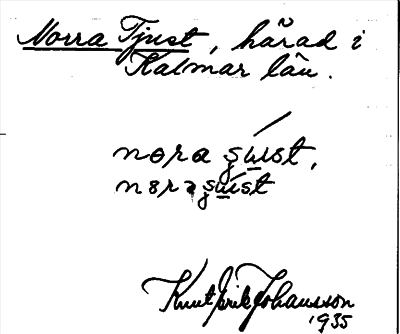 Norra Tjust, härad i
Kalmar län.
nora şu̲ıst,
nɘrə şu̲íst
Knut Erik Johansson
1935